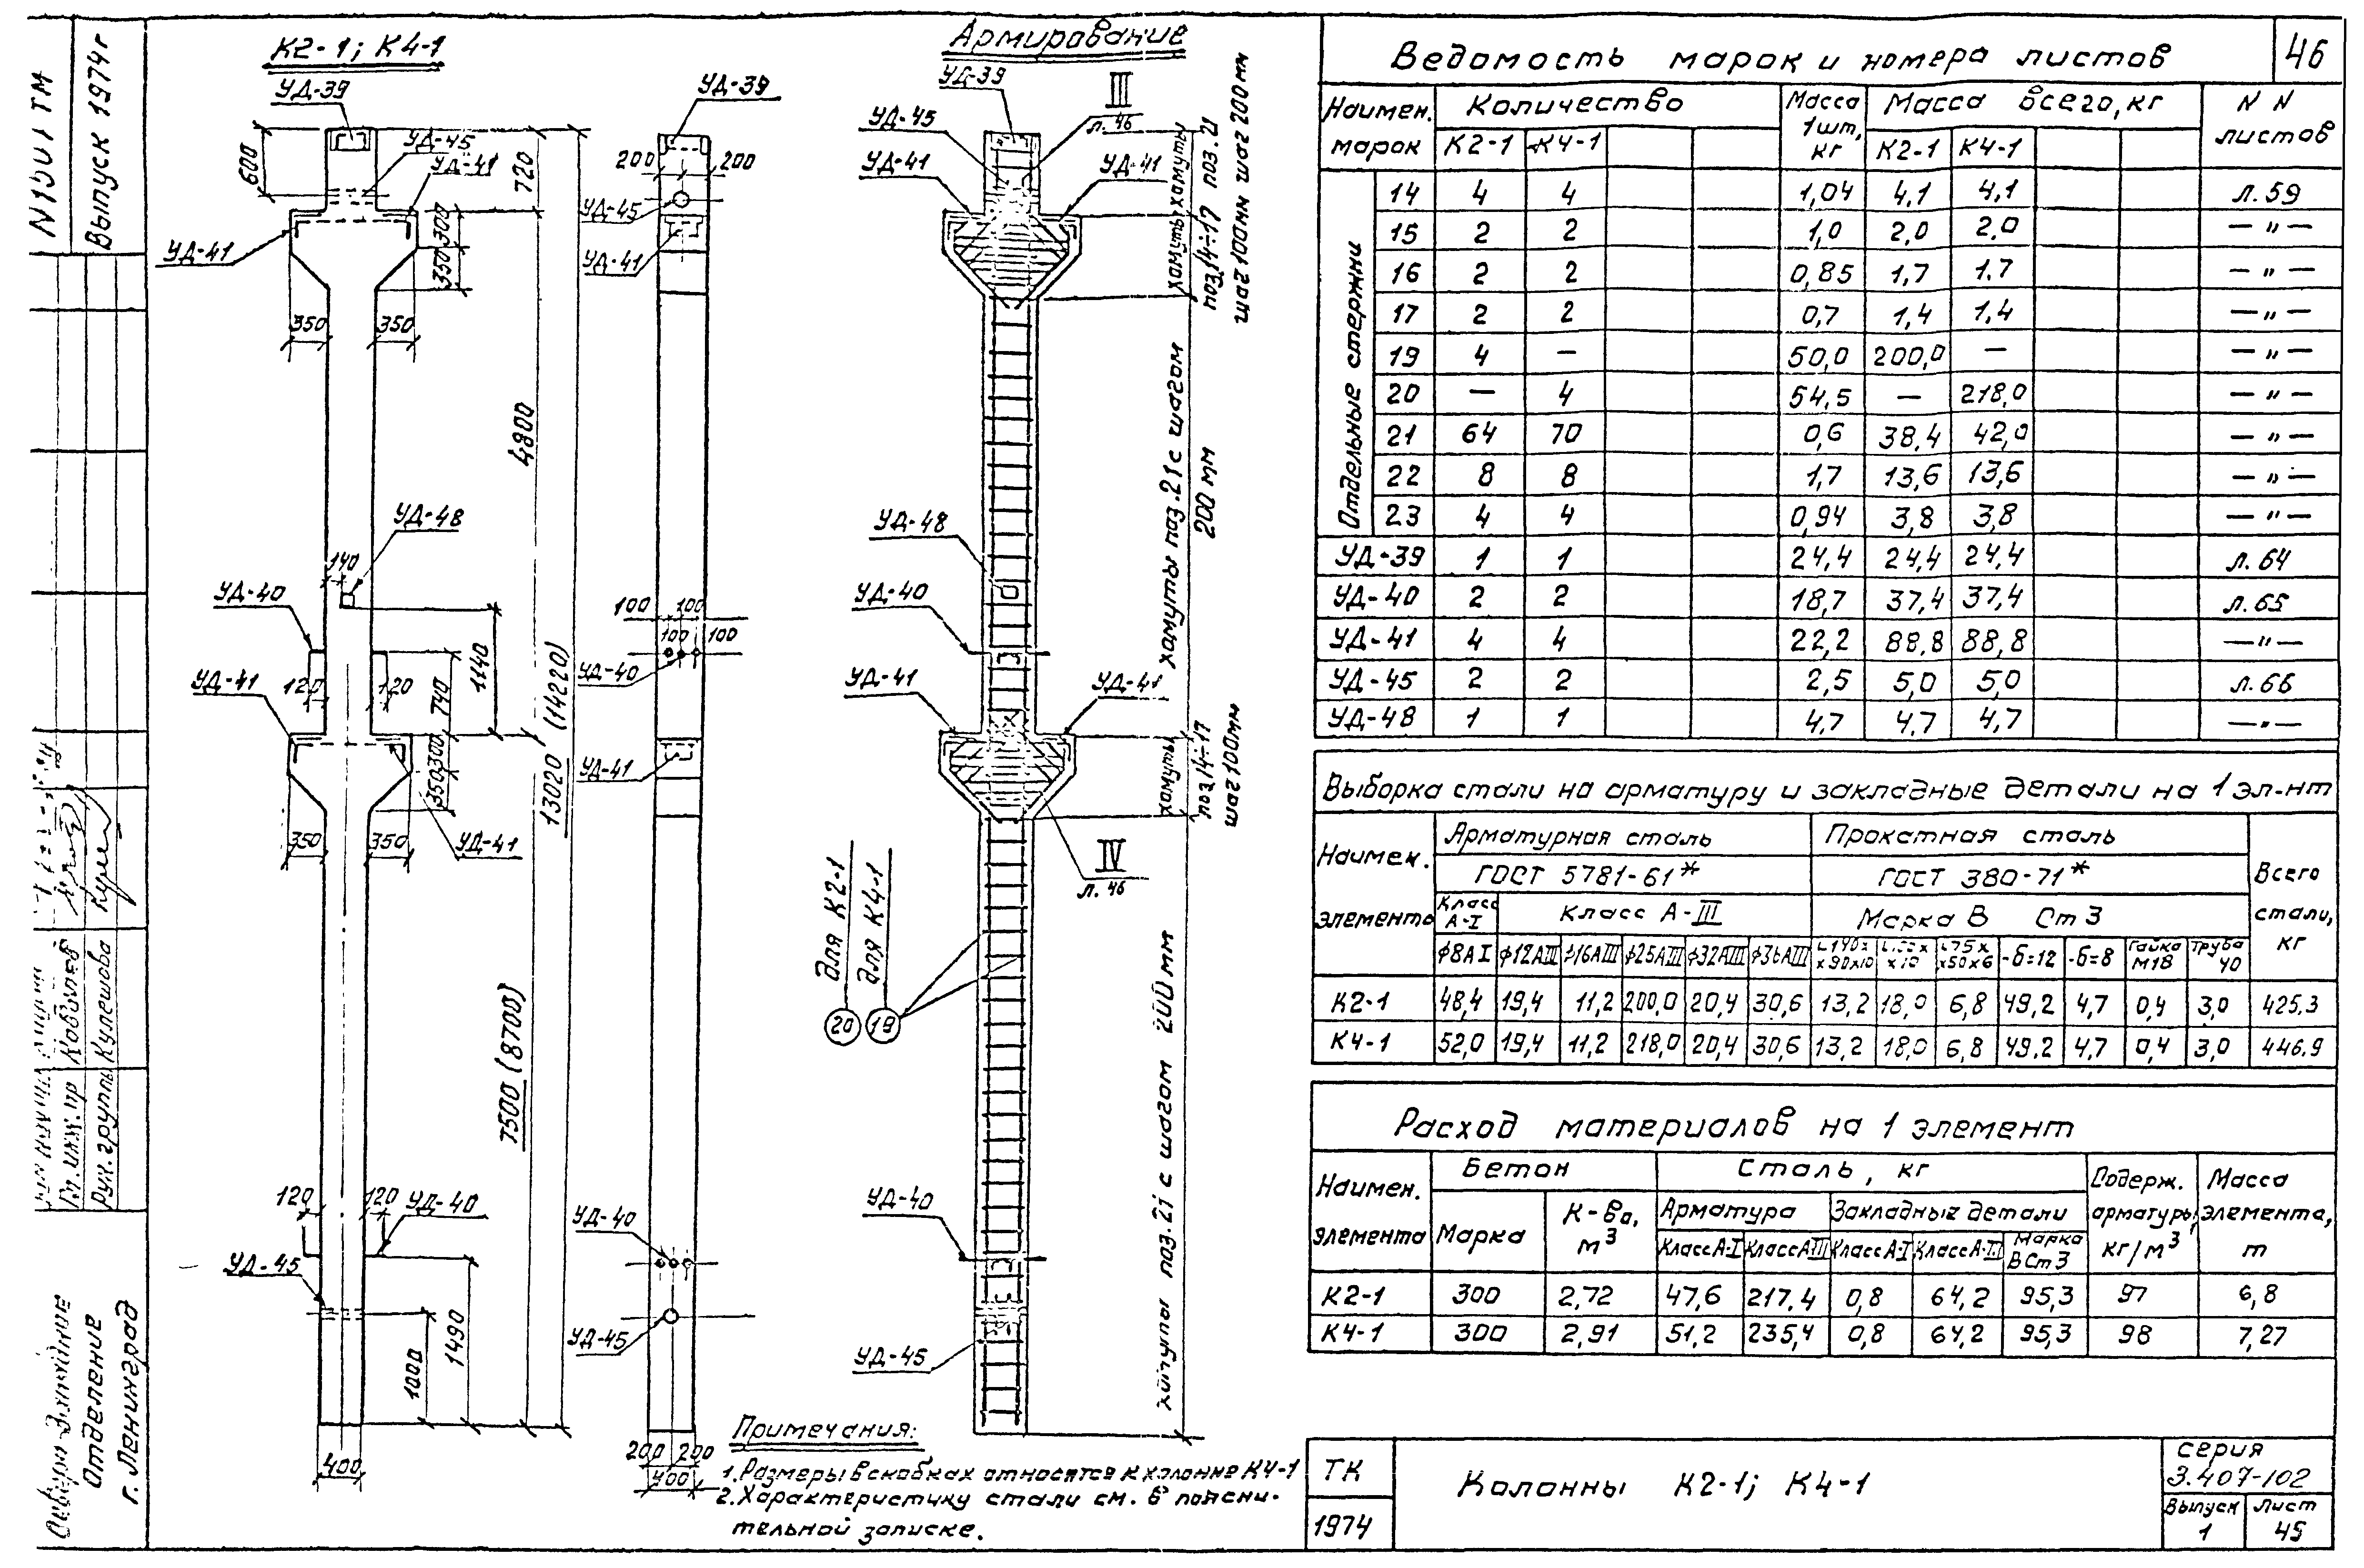 Выпуск 1974г
Гл. инж. пр
Рук. группы Кулешова
Отделение
г. Ленинград
К2-1; К4-1
УД-39
УД-45
УД-41
600
720
300
350
УД-41
350 350
4800
УД-48
140
УД-40
1140
УД-41
120 120
740
13020 (14220)
300
350
350 350
УД-41
7500 (8700)
120 120
УД-40
УД-45
1490
1000
400
УД-39
200 200
УД-45
УД-41
100 100
100 100
УД-40
УД-41
УД-40
УД-45
200 200
400
Армирование
УД-39
III
л. 46
УД-45
УД-41
УД-41
хомуты поз. 21
шаг 200мм
хомуты
поз. 14÷17
шаг 100мм
хомуты поз. 21 с шагом
200 мм
УД-48
УД-40
УД-41
УД-41
хомуты
поз. 14÷17
шаг 100мм
IV
л. 46
для К2-1
для К4-1
20 19
хомуты поз. 21 с шагом 200мм
УД-40
УД-45
Примечания:
1. Размеры в скобках относятся к колонне К4-1
2. Характеристику стали см. в поясни-
тельной записке.
46
Ведомость марок и номера листов
Наимен. марок Количество Масса 1шт, кг Масса всего, кг N N листов
К2-1 К4-1 К2-1 К4-1
Отдельные стержни
14 4 4 1,04 4,1 4,1 л. 59
15 2 2 1,0 2,0 2,0 — " —
16 2 2 0,85 1,7 1.7 — " —
17 2 2 0,7 1,4 1,4 — " —
19 4 — 50,0 200,0 — — " —
20 — 4 54,5 — 218,0 — " —
21 64 70 0,6 38,4 42,0 — " —
22 8 8 1,7 13,6 13,6 — " —
23 4 4 0,94 3,8 3,8 — " —
УД-39 1 1 24,4 24,4 24,4 л. 64
УД-40 2 2 18,7 37,4 37,4 л. 65
УД-41 4 4 22,2 88,8 88,8 — " —
УД-45 2 2 2,5 5,0 5,0 л. 66
УД-48 1 1 4,7 4,7 4,7 — " —
Выборка стали на арматуру и закладные детали на 1 эл-нт
Наимен. элемента Арматурная сталь Прокатная сталь Всего стали, кг
ГОСТ 5781-61* ГОСТ 380-71*
Класс А-I Класс А-III Марка В Ст 3
φ8АI φ12АIII φ16АIII φ25АIII φ32АIII φ36АIII ∟140х х90х10 х10 ∟75х х50х6 -δ=12 -δ=8 Гайка М18 Труба 40
К2-1 48,4 19,4 11,2 200,0 20,4 30,6 13,2 18,0 6,8 49,2 4,7 0,4 3,0 425.3
К4-1 52,0 19,4 11,2 218,0 20,4 30,6 13,2 18,0 6,8 49,2 4,7 0,4 3,0 446.9
Расход материалов на 1 элемент
Наимен. элемента Бетон Сталь, кг Содерж. арматуры, кг/м³ Масса элемента, т
Марка К-во, м³ Арматура Закладные детали
Класс А-I Класс АIII Класс А-I Класс А-III Марка ВСт3
К2-1 300 2,72 47,6 217,4 0,8 64,2 95,3 97 6,8
К4-1 300 2,91 51,2 235,4 0,8 64,2 95,3 98 7,27
ТК
1974
Колонны К2-1; К4-1
серия
3.407-102
Выпуск Лист
1 45